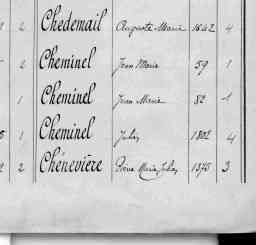 2 Chedemail Auguste Marie 1842 4
2 Cheminel Jean Marie 59 1
1 Cheminel Jean Marie 82 1
1 Cheminel Jules 1802 4
2 2 Chénevière Pierre Marie Jules 1875 3